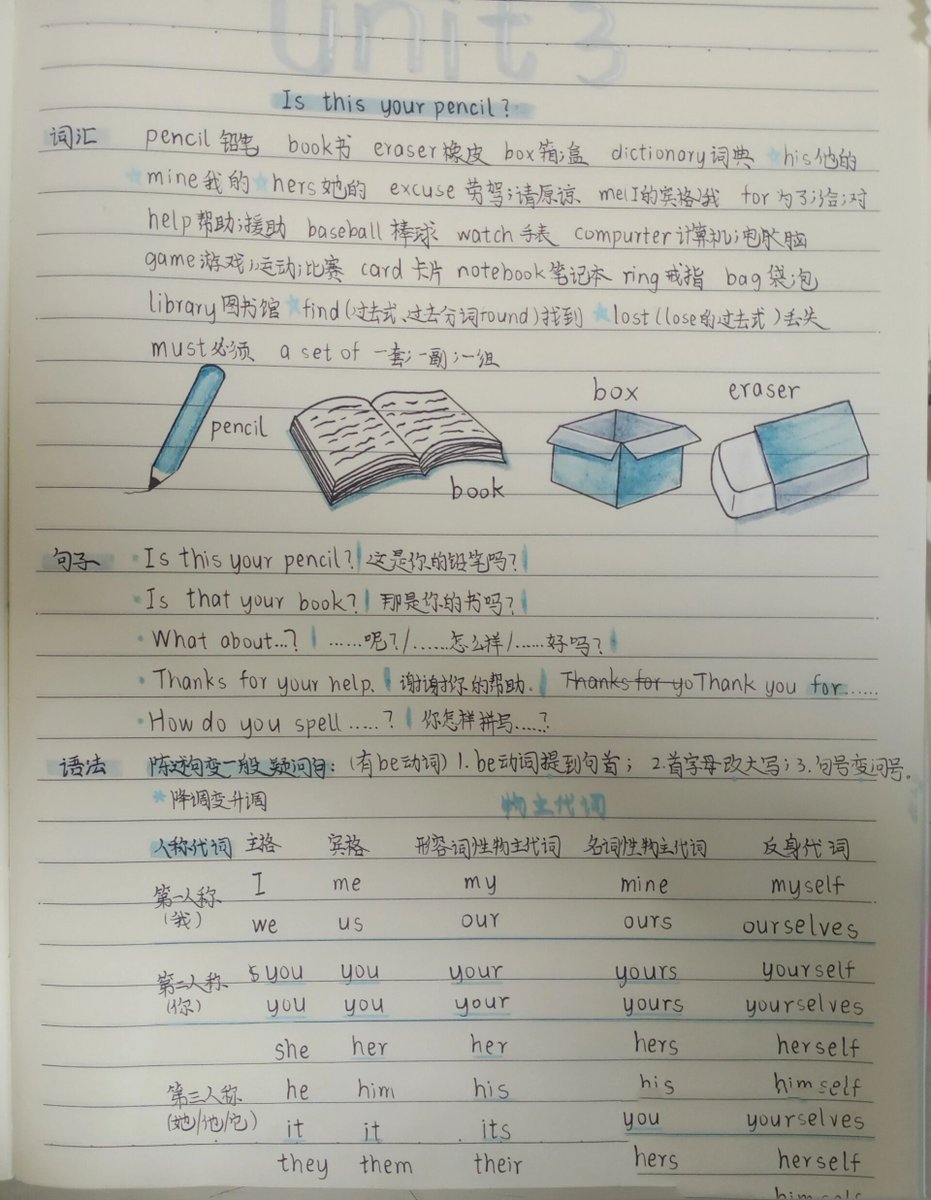 Unit 3
Is this your pencil?
词汇 pencil 铅笔 book书 eraser 橡皮 box箱;盒 dictionary 词典 ☆his他的
☆mine我的 ☆hers她的 excuse 劳驾;请原谅 me(I的宾格)我 for 为了;给;对
help帮助;援助 baseball 棒球 watch手表 compurter计算机;电脑
game游戏;运动;比赛 card卡片 notebook笔记本 ring戒指 bag袋;包
library图书馆 ☆find(过去式、过去分词found)找到 ☆lost(lose的过去式)丢失
must必须 a set of 一套;一副;一组
box eraser
pencil
book
句子 ·Is this your pencil? 这是你的铅笔吗?
·Is that your book? 那是你的书吗?
·What about...? ......呢?/......怎么样/......好吗?
·Thanks for your help. 谢谢你的帮助. Thanks for yo Thank you for......
·How do you spell......? 你怎样拼写......?
语法 陈述句变一般疑问句:(有be动词) 1.be动词提到句首; 2.首字母改大写;3.句号变问号。
*降调变升调 物主代词
人称代词 主格 宾格 形容词性物主代词 名词性物主代词 反身代词
第一人称 I me my mine myself
(我) we us our ours ourselves
第二人称 you you your yours yourself
(你) you you your yours yourselves
she her her hers herself
第三人称 he him his his himself
(她/他/它) it it its you yourselves
they them their hers herself
himself